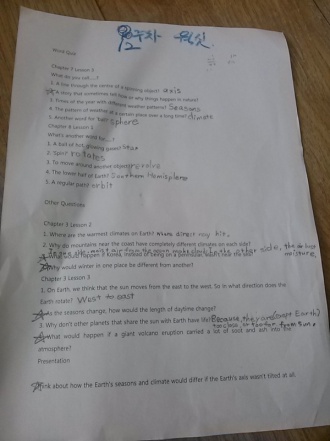 12주차 워크싯
Word Quiz
Chapter 7 Lesson 3
What do you call....?
1. A line through the centre of a spinning object? axis
2. A story that sometimes tells how or why things happen in nature?
3. Times of the year with different weather patterns? Seasons
4. The pattern of weather at a certain place over a long time? climate
5. Another word for ball? sphere
Chapter 8 Lesson 1
What's another word for....?
1. A ball of hot, glowing gases? star
2. Spin? rotates
3. To move around another object revolve
4. The lower half of Earth? Sunthern Hemisphere
5. A regular path? orbit
Other Questions
Chapter 3 Lesson 2
1. Where are the warmest climates on Earth? where direct ray hit,
2. Why do mountains near the coast have completely different climates on each side?
happen if Korea, instead of being on a peninsula
Why would winter in one place be different from another?
Chapter 3 Lesson 3
1. On Earth, we think that the sun moves from the east to the west. So in what direction does the
Earth rotate? West to east
As the seasons change, how would the length of daytime change?
3. Why don't other planets that share the sun with Earth have life? Because, they are (except Earth)
too close or farther from sun
What would happen if a giant volcano eruption carried a lot of soot and ash into the
atmosphere?
Presentation
Think about how the Earth's seasons and climate would differ if the Earth's axis wasn't tilted at all.